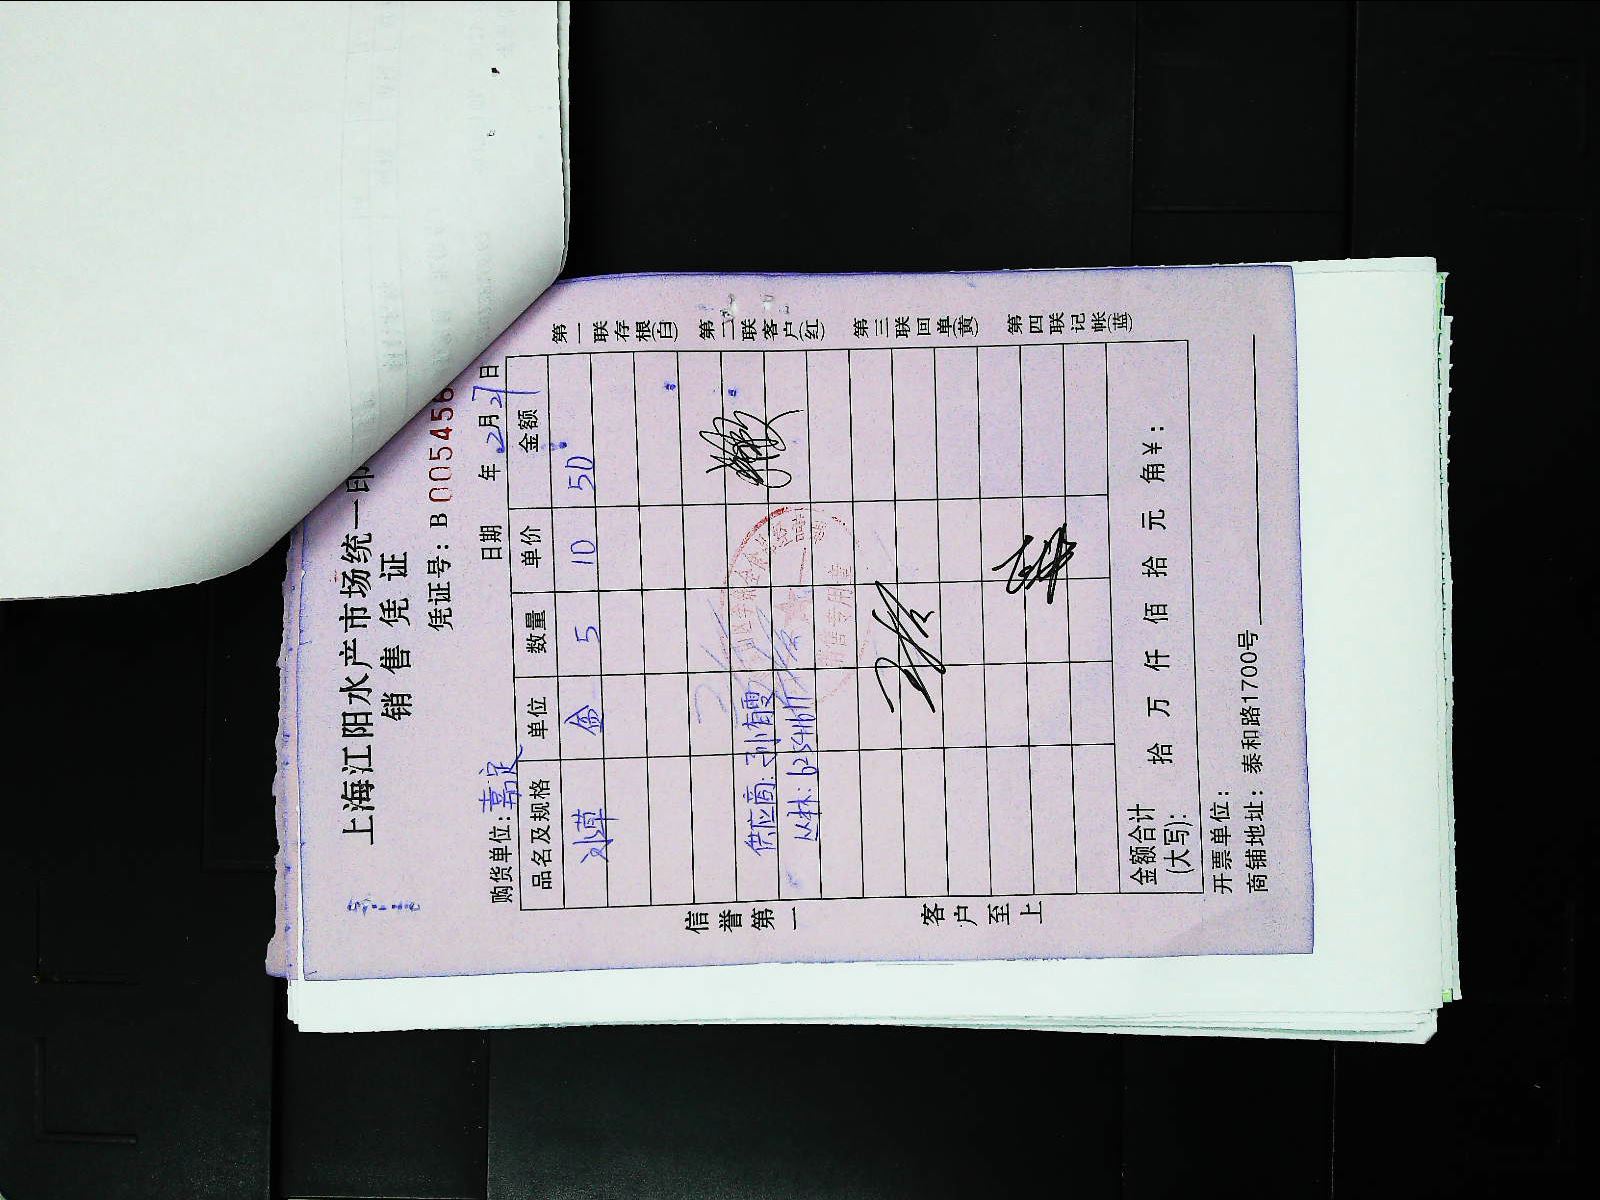 上海江阳水产市场统一印
销售凭证
凭证号：B 005456
购货单位：嘉定 日期 年 2月27日
品名及规格 单位 数量 单价 金额
盒 5 10 50
供应商：孙有雯
信誉第一 客户至上
第一联存根(白) 第二联客户(红) 第三联回单(黄) 第四联记帐(蓝)
金额合计(大写)： 拾 万 仟 佰 拾 元 角￥：
开票单位：
商铺地址：泰和路1700号